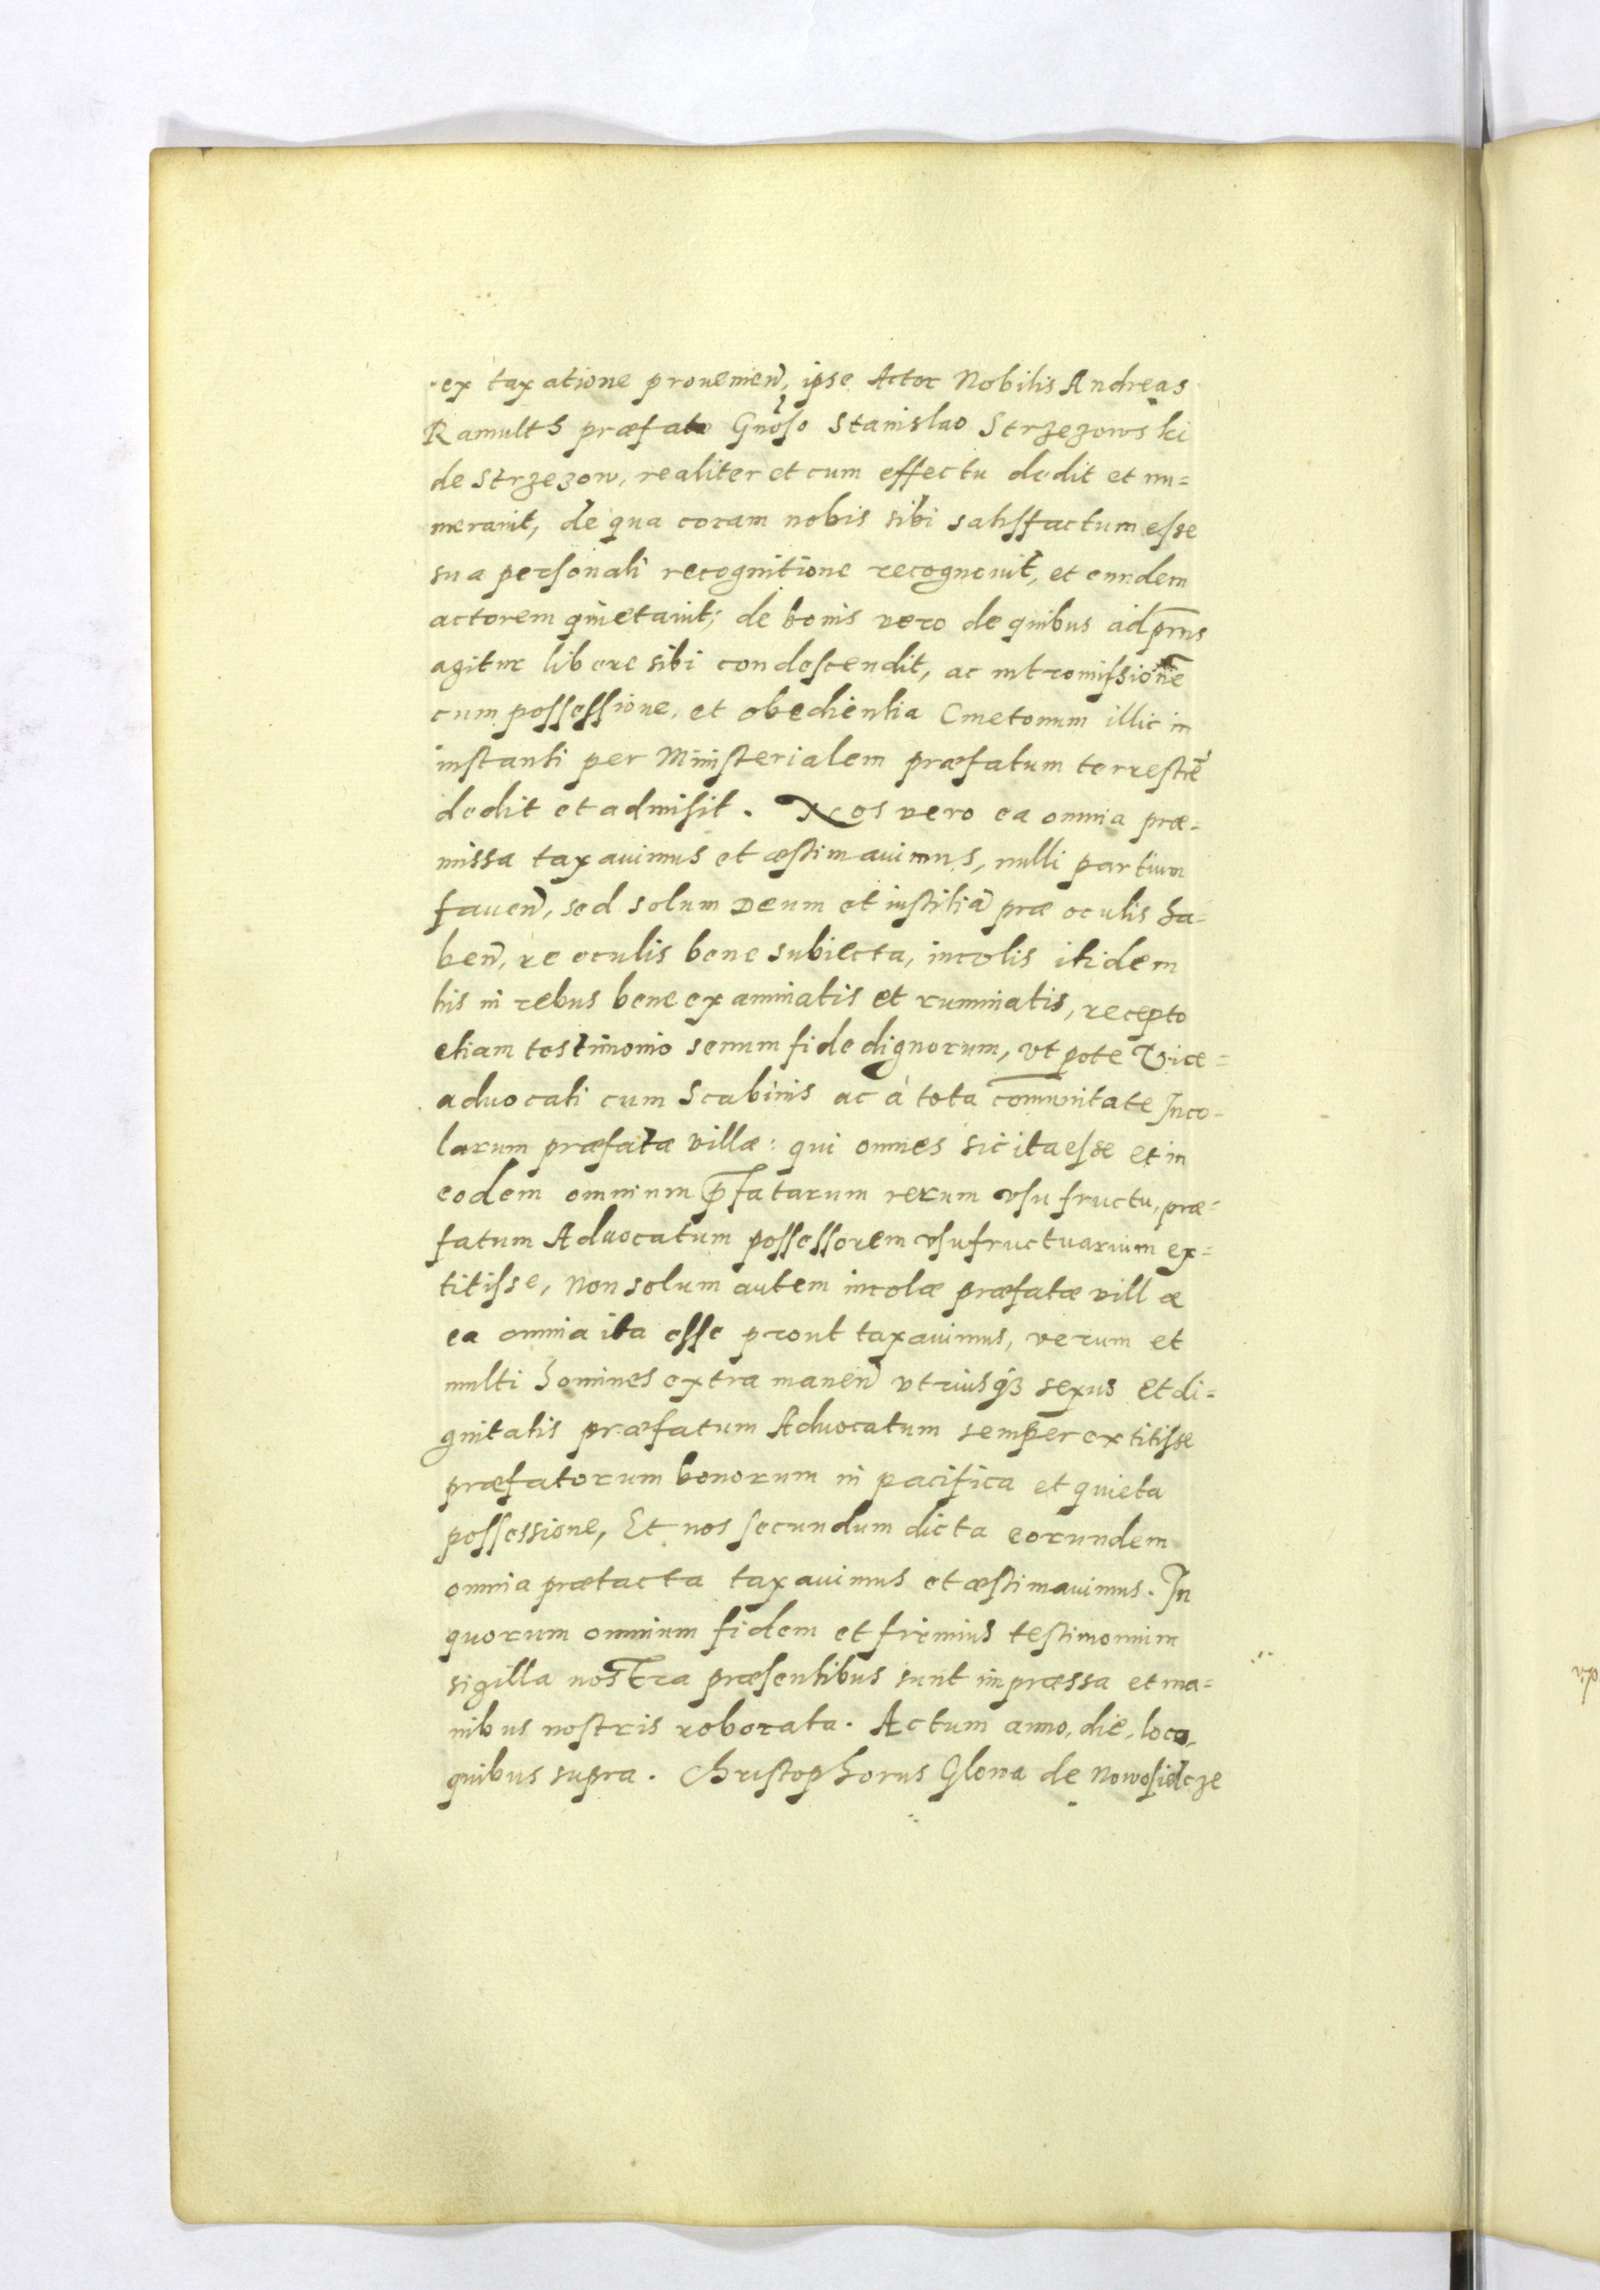 ex taxatione prouenien̄, ipse Actor Nobilis Andreas
Ramulth præfato Gnoso Stanislao Strzezowski
de Strzezow, realiter et cum effectu dedit et nu=
merauit, de qua coram nobis sibi satisfactum esse
sua personali recognitione recognouit, et eundem
actorem quietauit; de bonis vero de quibus ad p̄ns
agitur libere sibi condescendit, ac intromissionē
cum possessione, et obedientia Cmetonum illic in
instanti per Ministerialem præfatum terrestrē
dedit et admisit. Nos vero ea omnia præ=
missa taxauimus et æstimauimus, nulli partium
fauen̄, sed solum Deum et iustitiā præ oculis ha=
ben̄, re oculis bene subiecta, incolis itidem
his in rebus bene examinatis et ruminatis, recepto
etiam testimonio senum fide dignorum, vt pote Vice=
aduocati cum Scabinis ac à tota com̄unitate Inco=
larum præfatæ villæ: qui omnes sic ita esse et in
eodem omnium p̄fatarum rerum vsufructu, præ=
fatum Aduocatum possessorem vsufructuarium ex=
titisse, Non solum autem incolæ præfatæ villæ
ea omnia ita esse prout taxauimus, verum et
multi homines extra manen̄ vtriusq3 sexus et di=
gnitatis præfatum Aduocatum semper extitisse
præfatorum bonorum in pacifica et quieta
possessione, Et nos secundum dicta eorundem
omnia prætacta taxauimus et æstimauimus. In
quorum omnium fidem et firmius testimonium
sigilla nostra præsentibus sunt impræssa et ma=
nibus nostris roborata. Actum anno, die, loco,
quibus supra. Christophorus Glowa de Nowosielcze